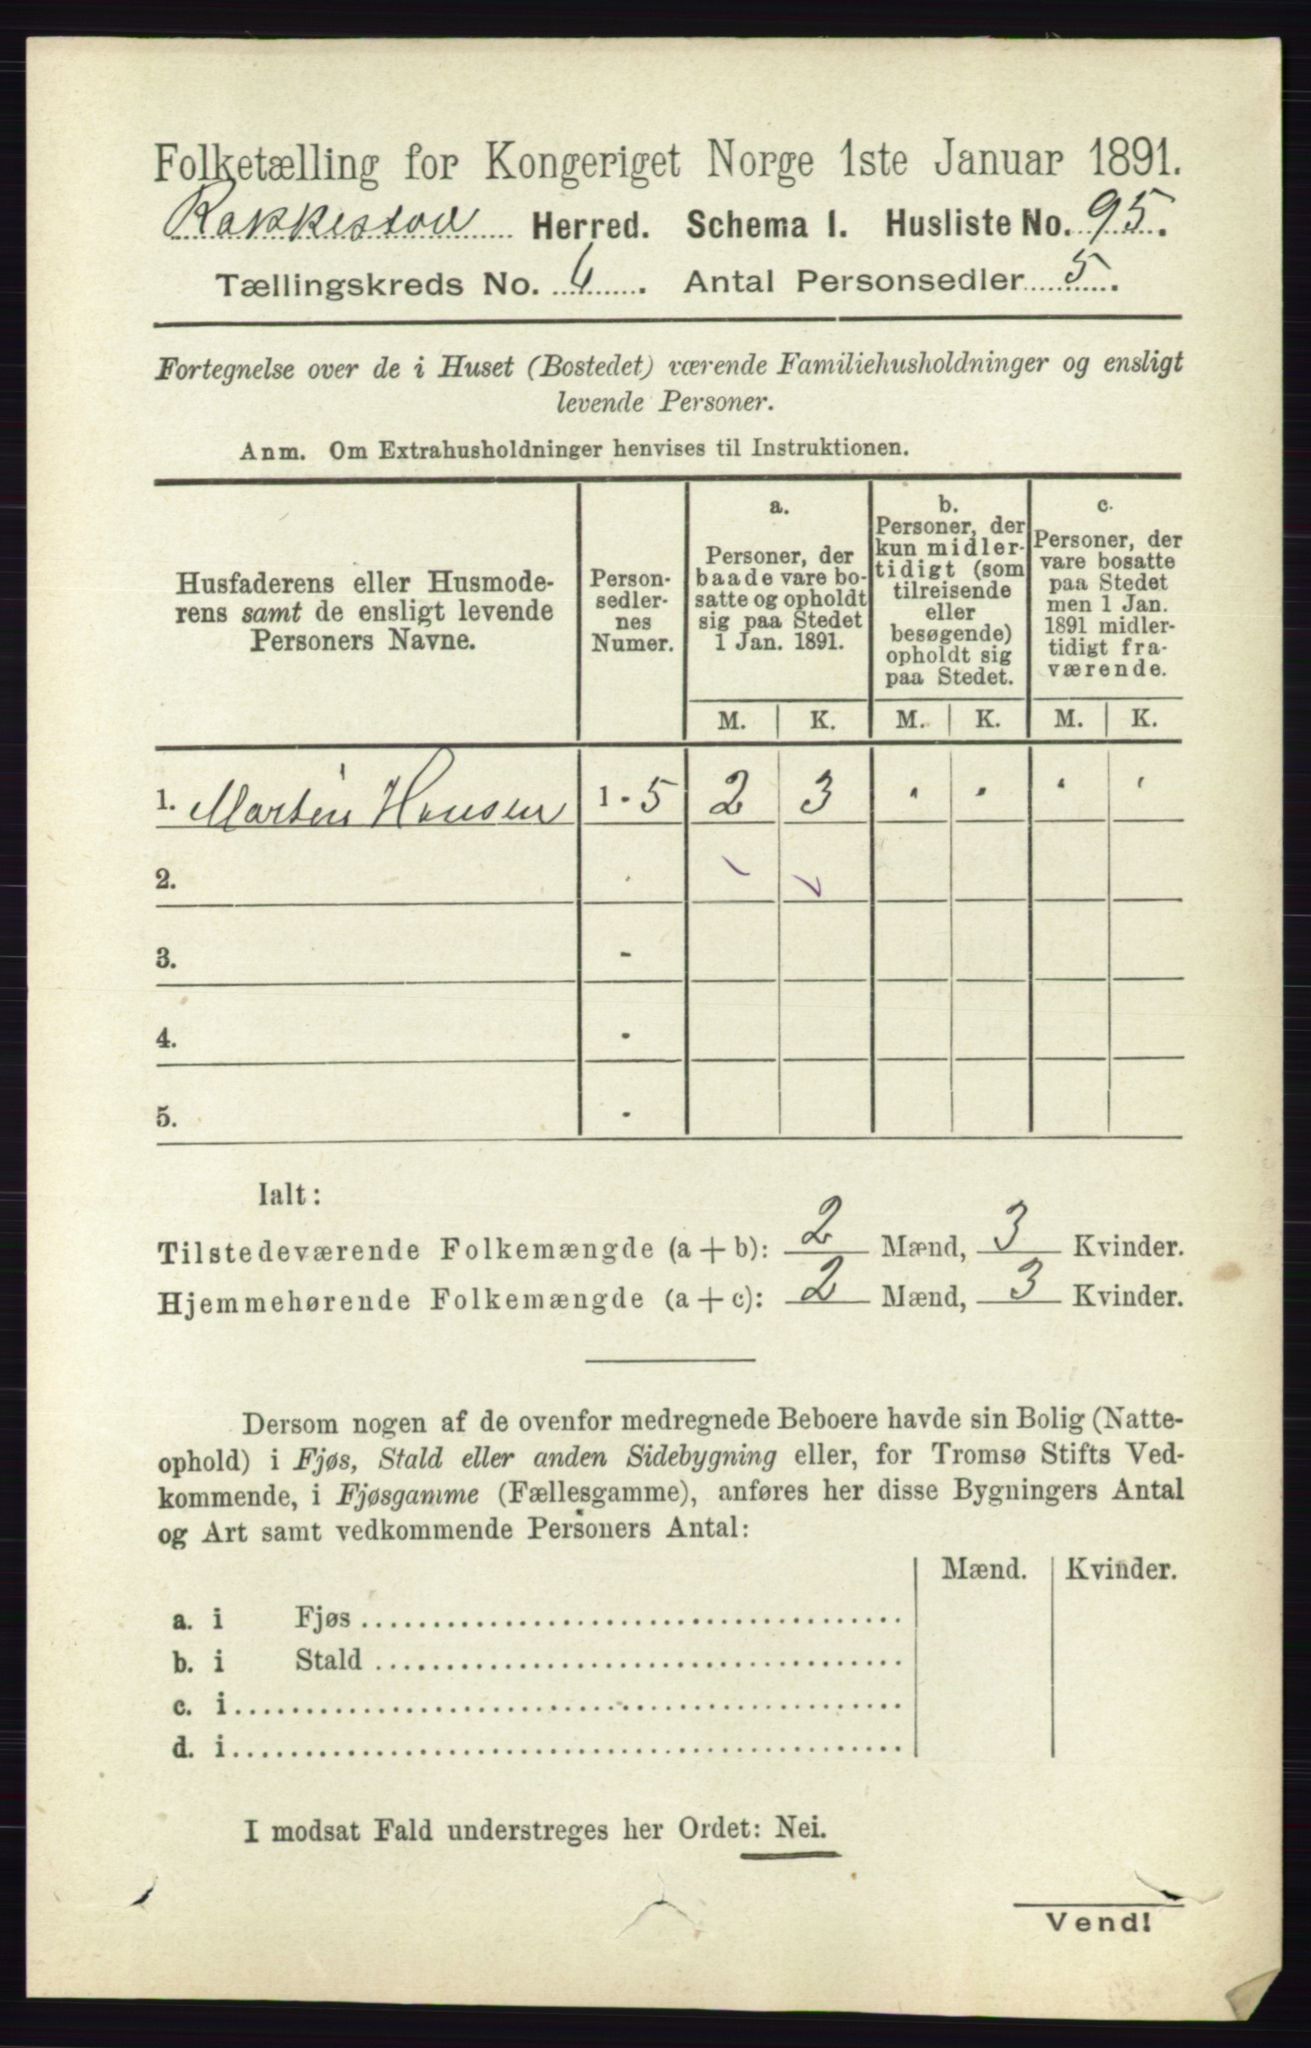 Folketælling for Kongeriget Norge 1ste Januar 1891.
Rakkestad Herred. Schema I. Husliste No. 95.
Tællingskreds No. 4. Antal Personsedler 5.
Fortegnelse over de i Huset (Bostedet) værende Familiehusholdninger og ensligt
levende Personer.
Anm. Om Extrahusholdninger henvises til Instruktionen.
Husfaderens eller Husmode-
rens samt de ensligt levende
Personers Navne.
Person-
sedler-
nes
Numer.
a.
Personer, der
baade vare bo-
satte og opholdt
sig paa Stedet
1 Jan. 1891.
b.
Personer, der
kun midler-
tidigt (som
tilreisende
eller
besøgende)
opholdt sig
paa Stedet.
c.
Personer, der
vare bosatte
paa Stedet
men 1 Jan.
1891 midler-
tidigt fra-
værende.
M. K. M. K. M. K.
1. Martin Hansen 1 - 5 2 3 . . . .
2.
3. -
4. -
5. -
Ialt:
Tilstedeværende Folkemængde (a + b): 2 Mænd, 3 Kvinder.
Hjemmehørende Folkemængde (a + c): 2 Mænd, 3 Kvinder.
Dersom nogen af de ovenfor medregnede Beboere havde sin Bolig (Natte-
ophold) i Fjøs, Stald eller anden Sidebygning eller, for Tromsø Stifts Ved-
kommende, i Fjøsgamme (Fællesgamme), anføres her disse Bygningers Antal
og Art samt vedkommende Personers Antal:
Mænd. Kvinder.
a. i Fjøs
b. i Stald
c. i
d. i
I modsat Fald understreges her Ordet: Nei.
Vend!